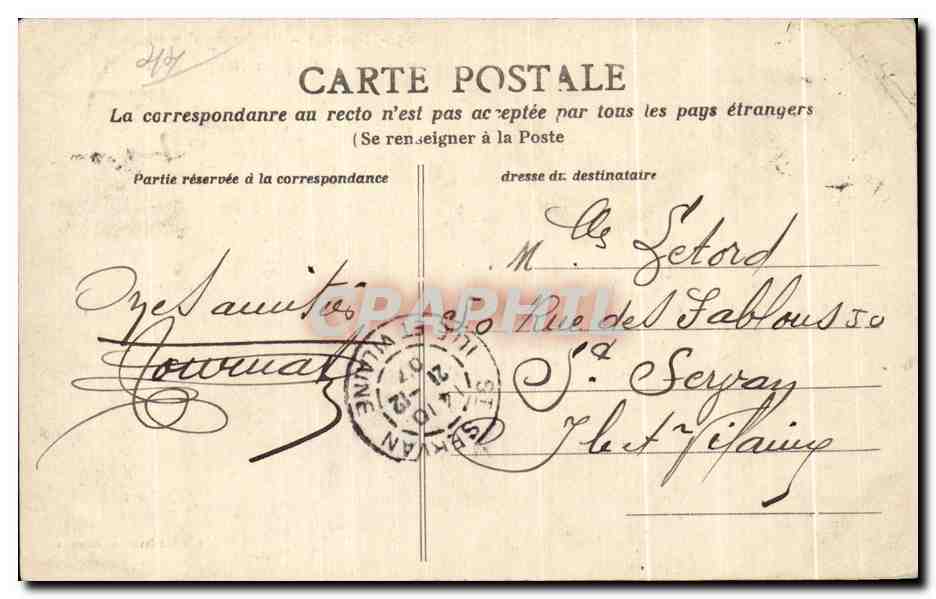 44
CARTE POSTALE
La correspondanre au recto n'est pas acceptée par tous les pays étrangers
(Se renseigner à la Poste
Partie réservée à la correspondance
dresse du destinataire
Mlle Letord
50 Rue des Sablons 50
St. Servan
Ile et Vilaine
amitiés
Tournat
ST SERVAN
ILLE ET VILAINE
21 -12
07
GRAPHTIL